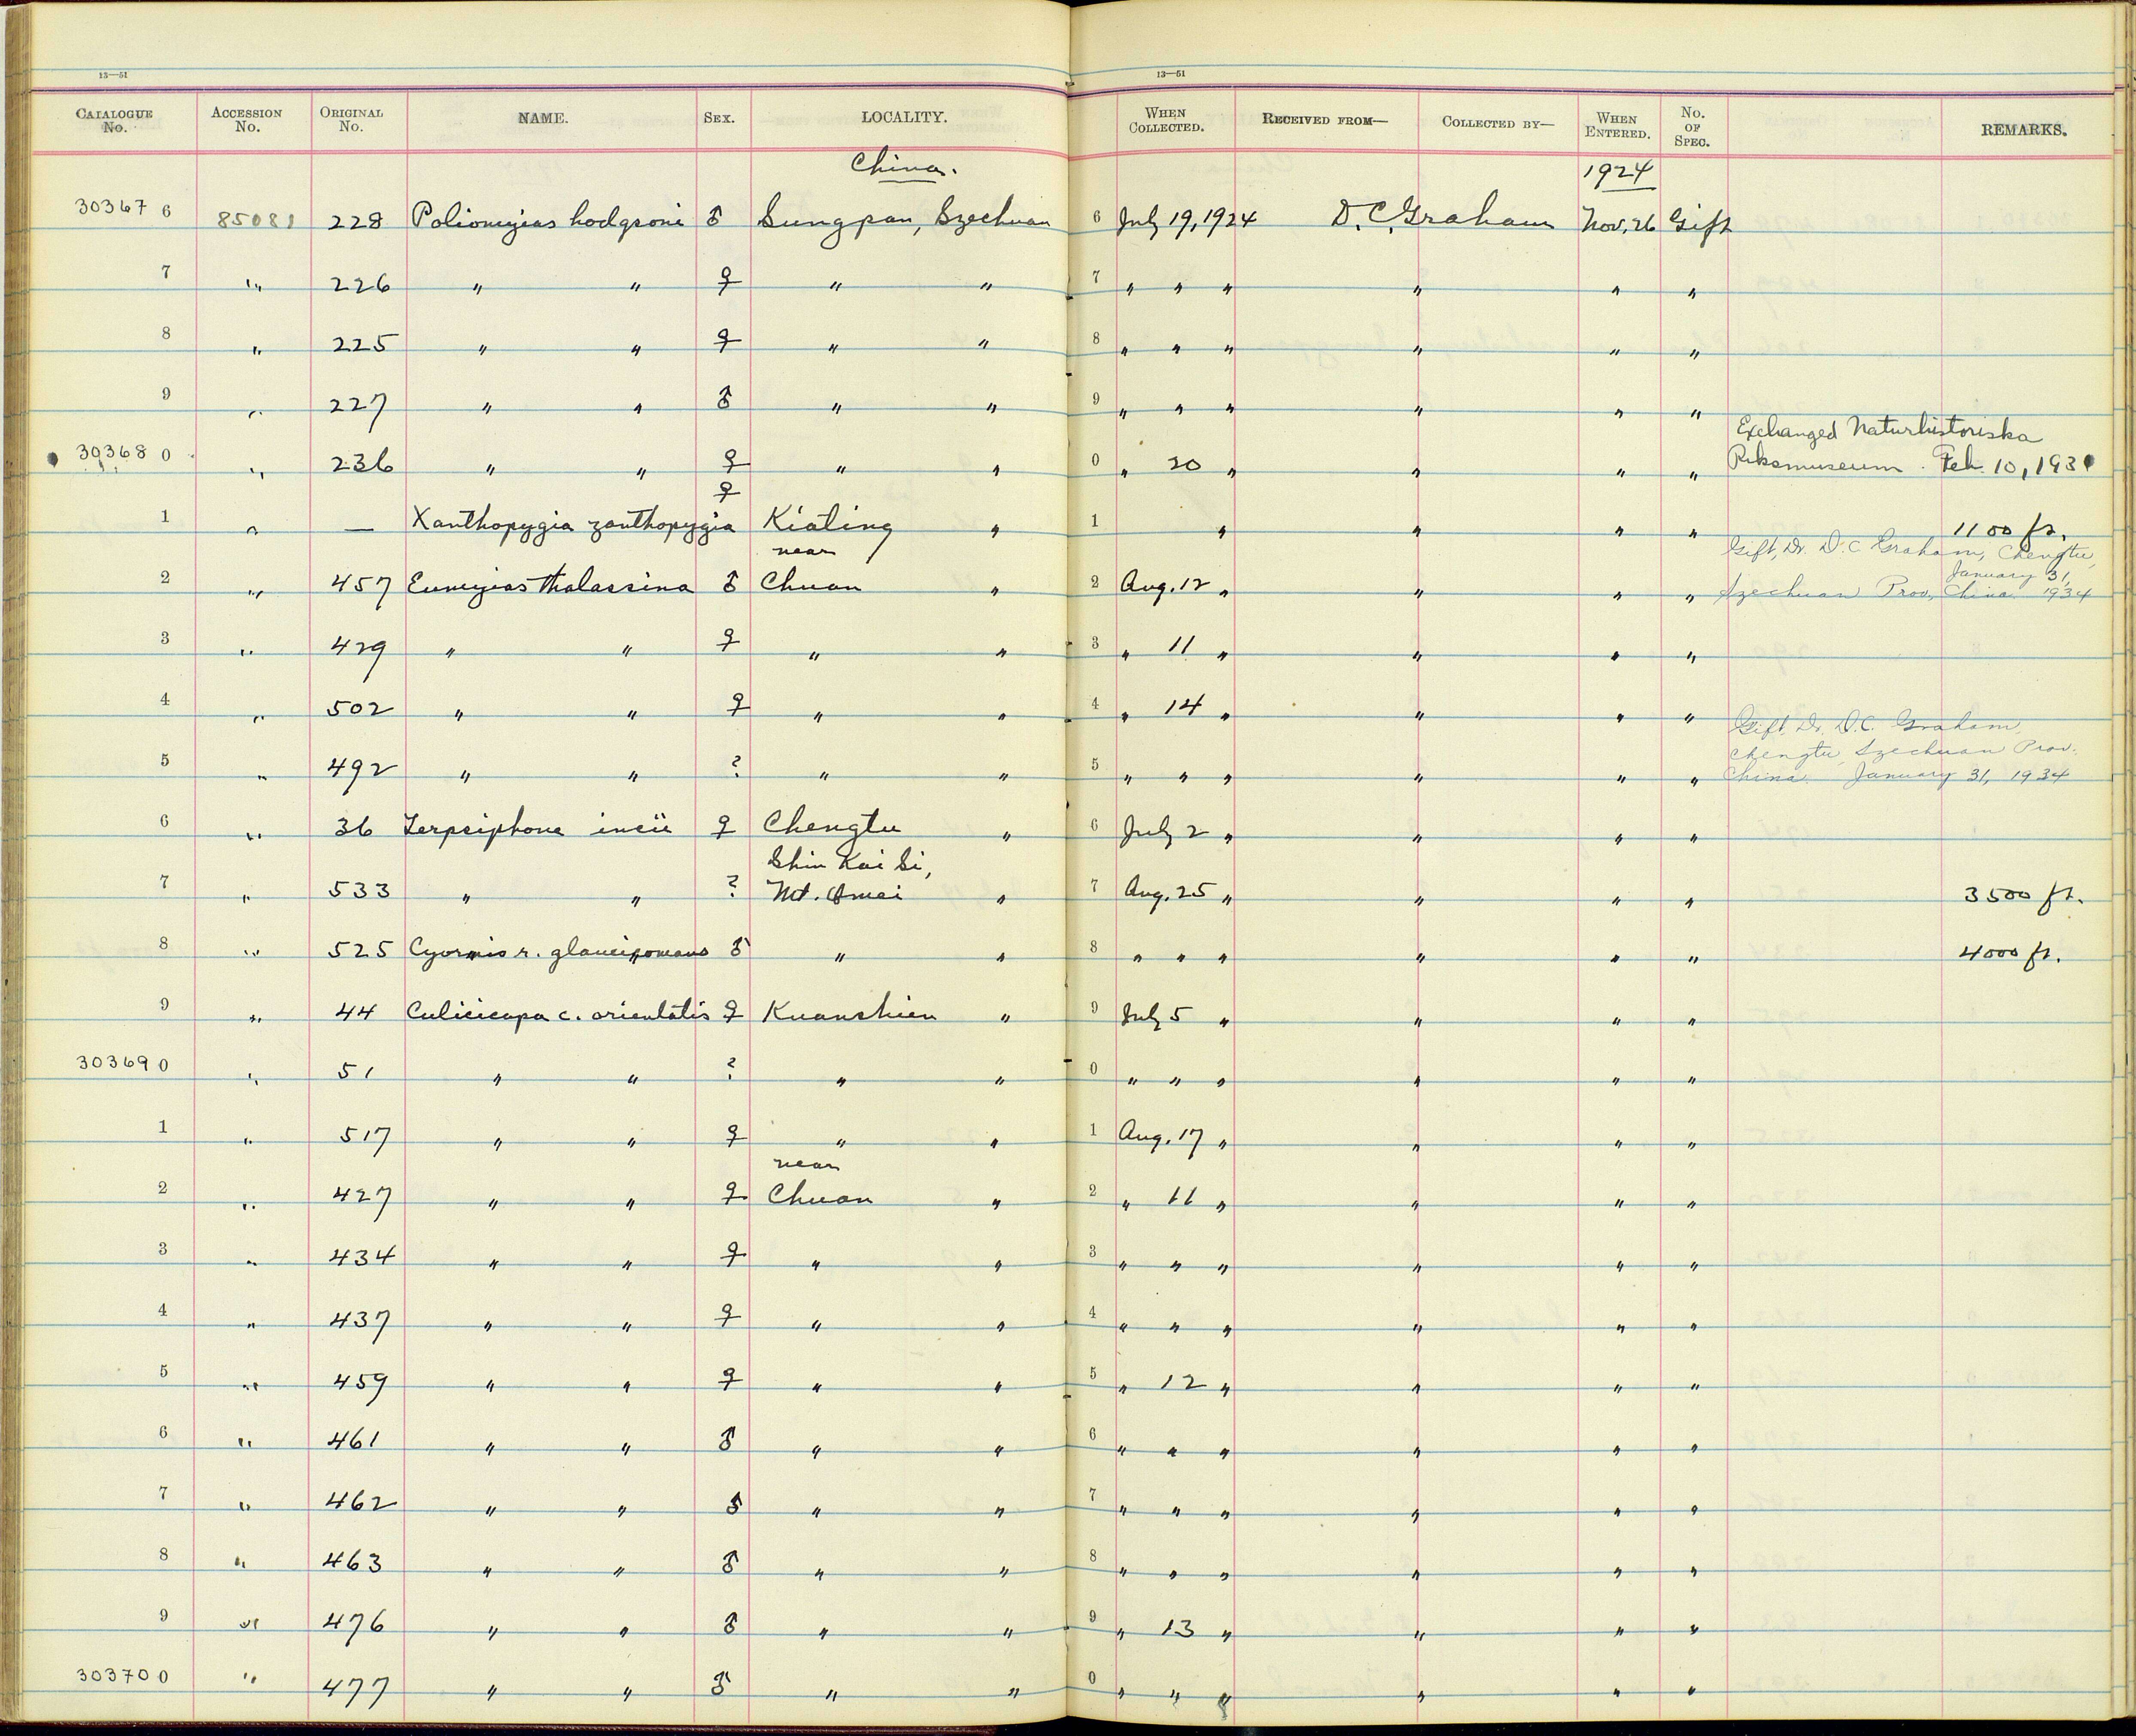 13—51 13—51
CATALOGUE No. ACCESSION No. ORIGINAL No. NAME. SEX. LOCALITY. WHEN COLLECTED. RECEIVED FROM— COLLECTED BY— WHEN ENTERED. No. OF SPEC. REMARKS.
China. 1924
30367 6 85081 228 Poliomyias hodgsoni ♂ Sungpan, Szechuan 6 July 19, 1924 D. C. Graham Nov. 26 Gift
7 " 226 " " ♀ " " 7 " " " " " "
8 " 225 " " ♀ " " 8 " " " " " "
9 " 227 " " ♂ " " 9 " " " " " "
Exchanged Naturhistoriska
30368 0 " 236 " " ♀ " " 0 " 20 " " " " Riksmuseum. Feb. 10, 1931
♀
1 " — Xanthopygia zanthopygia Kiating " 1 " " " " 1100 ft.
near Gift, Dr. D. C. Graham, Chengtu,
January 31,
2 " 457 Eumyias thalassina ♂ Chuan " 2 Aug. 12 " " " " Szechuan Prov, China. 1934
3 " 429 " " ♀ " " 3 " 11 " " " "
4 " 502 " " ♀ " " 4 " 14 " " " "
Gift, Dr. D. C. Graham,
Chengtu, Szechuan Prov.
5 " 492 " " ? " " 5 " " " " " " China. January 31, 1934
6 " " 36 Terpsiphone incii ♀ Chengtu " 6 July 2 " " " "
Shin Kai Si,
7 " 533 " " ? Mt. Omei " 7 Aug. 25 " " " " 3500 ft.
8 " 525 Cyornis r. glaucicomans ♂ " " 8 " " " " " " 4000 ft.
9 " 44 Culicicapa c. orientalis ♀ Kuanshien " 9 July 5 " " " "
30369 0 " 51 " " ? " " 0 " " " " " "
1 " 517 " " ♀ " " 1 Aug. 17 " " " "
near
2 " 427 " " ♀ Chuan " 2 " 11 " " " "
3 " 434 " " ♀ " " 3 " " " " " "
4 " 437 " " ♀ " " 4 " " " " " "
5 " 459 " " ♀ " " 5 " 12 " " " "
6 " 461 " " ♂ " " 6 " " " " " "
7 " 462 " " ♂ " " 7 " " " " " "
8 " 463 " " ♂ " " 8 " " " " " "
9 " 476 " " ♂ " " 9 " 13 " " " "
30370 0 " 477 " " ♂ " " 0 " " " " " "